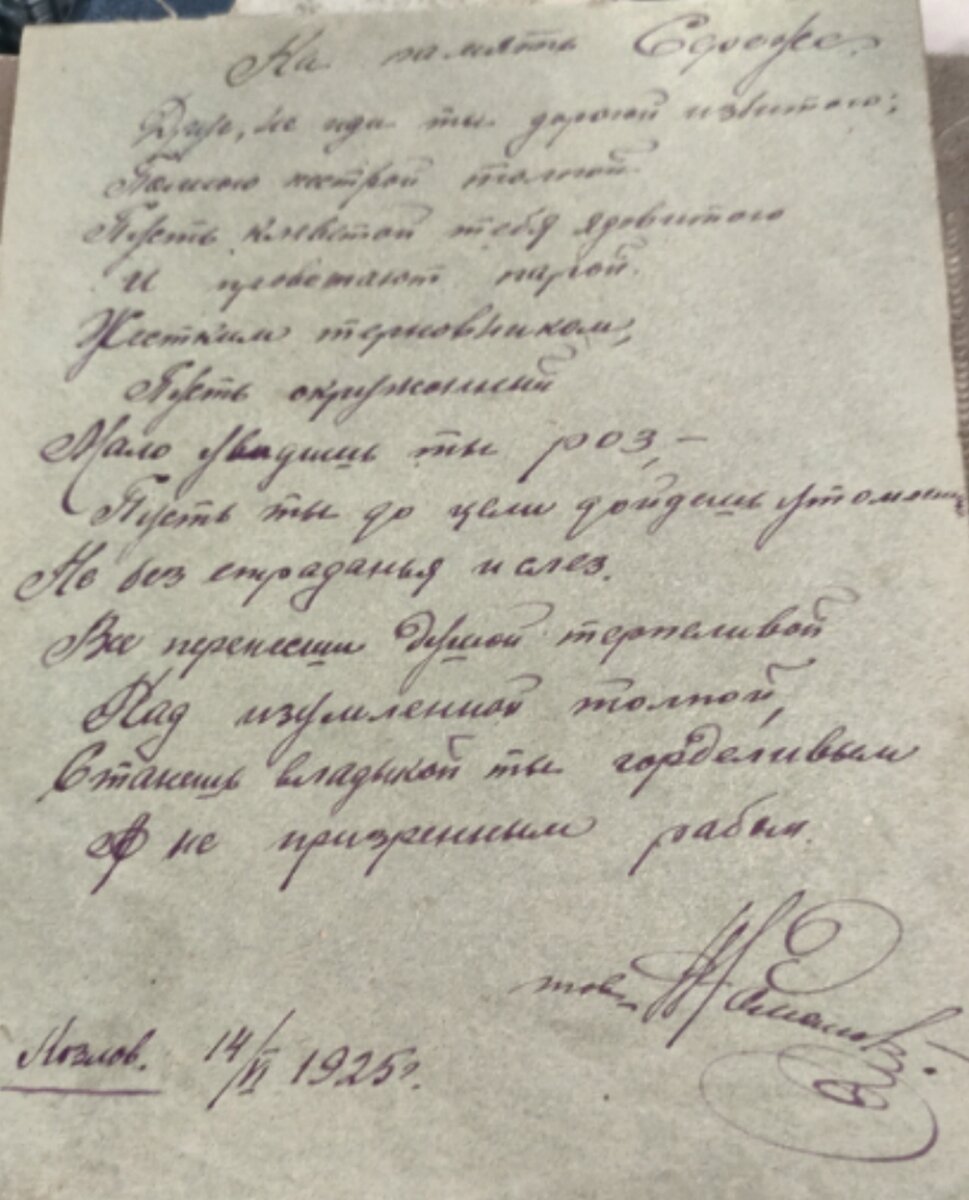 На память Сереже.
Друг, не иди ты дорогой избитою;
Полною пестрой толпой
Пусть клеветой тебя ядовитого
И провожают парой.
Жестким терновником,
Пусть окружонный
Мало увидишь ты роз, —
Пусть ты до цели дойдешь утомлен
Не без страданья и слез.
Все перенесши душой терпеливой
Над изумленной толпой,
Станешь владыкой ты горделивым
А не призренным рабом.
тов.
Козлов. 14/VI 1925 г.